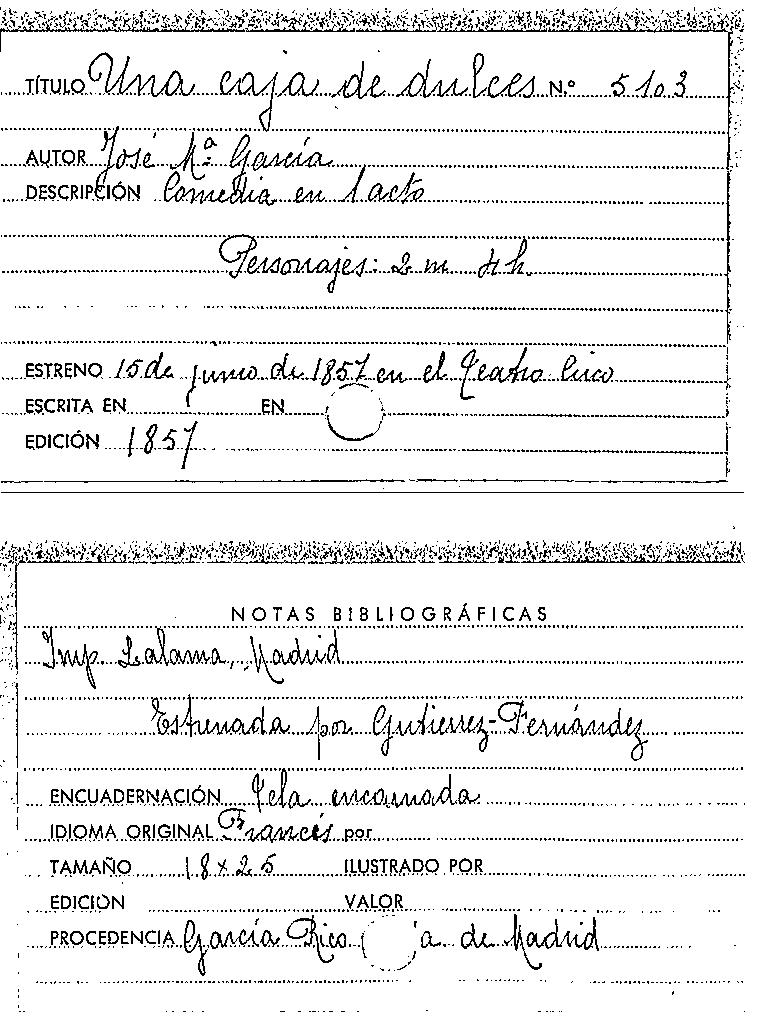 TÍTULO Una caja de dulces N.º 5103
AUTOR José Mª García
DESCRIPCIÓN Comedia en 1 acto
Personajes: 2 m 4 h.
ESTRENO 15 de junio de 1857 en el Teatro Circo
ESCRITA EN EN
EDICIÓN 1857
NOTAS BIBLIOGRÁFICAS
Imp. Lalama, Madrid
Estrenada por Gutierrez-Fernández
ENCUADERNACIÓN Tela encarnada
IDIOMA ORIGINAL Francés por
TAMAÑO 18 x 25 ILUSTRADO POR
EDICIÓN VALOR
PROCEDENCIA García Rico a de Madrid